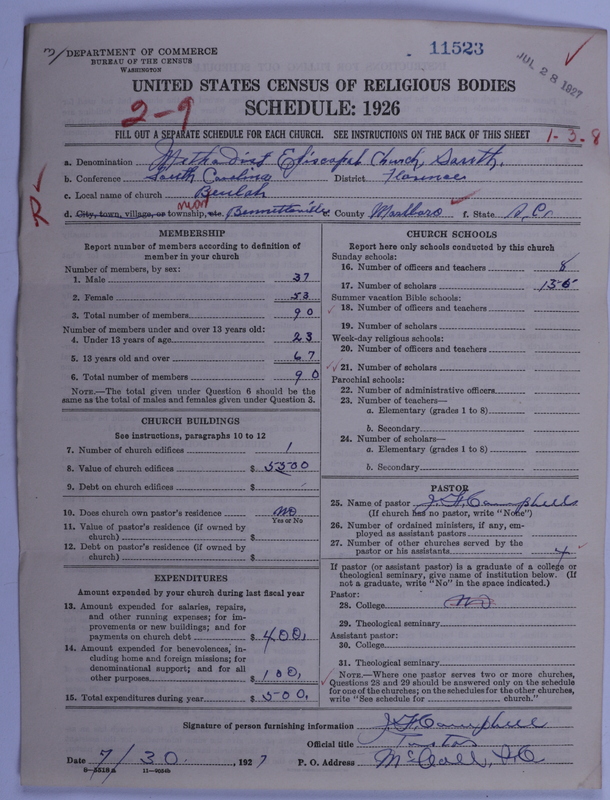 3/ DEPARTMENT OF COMMERCE
BUREAU OF THE CENSUS
WASHINGTON
11523
JUL 28 1927
UNITED STATES CENSUS OF RELIGIOUS BODIES
2-9
SCHEDULE: 1926
FILL OUT A SEPARATE SCHEDULE FOR EACH CHURCH. SEE INSTRUCTIONS ON THE BACK OF THIS SHEET
1-3-8
a. Denomination Methodist Episcopal Church, South.
b. Conference South Carolina District Florence
c. Local name of church Beulah
d. City, town, village, or township, etc. near Bennettsville County Marlboro f. State S.C.
R
MEMBERSHIP
Report number of members according to definition of
member in your church
Number of members, by sex:
1. Male 37
2. Female 53
3. Total number of members 90
Number of members under and over 13 years old:
4. Under 13 years of age 23
5. 13 years old and over 67
6. Total number of members 90
NOTE.—The total given under Question 6 should be the
same as the total of males and females given under Question 3.
CHURCH BUILDINGS
See instructions, paragraphs 10 to 12
7. Number of church edifices 1
8. Value of church edifices $ 5500
9. Debt on church edifices $
10. Does church own pastor's residence No
Yes or No
11. Value of pastor's residence (if owned by
church) $
12. Debt on pastor's residence (if owned by
church) $
EXPENDITURES
Amount expended by your church during last fiscal year
13. Amount expended for salaries, repairs,
and other running expenses; for im-
provements or new buildings; and for
payments on church debt $ 400.
14. Amount expended for benevolences, in-
cluding home and foreign missions; for
denominational support; and for all
other purposes $ 100.
15. Total expenditures during year $ 500.
CHURCH SCHOOLS
Report here only schools conducted by this church
Sunday schools:
16. Number of officers and teachers 8
17. Number of scholars 135
Summer vacation Bible schools:
18. Number of officers and teachers
19. Number of scholars
Week-day religious schools:
20. Number of officers and teachers
21. Number of scholars
Parochial schools:
22. Number of administrative officers
23. Number of teachers—
a. Elementary (grades 1 to 8)
b. Secondary
24. Number of scholars—
a. Elementary (grades 1 to 8)
b. Secondary
PASTOR
25. Name of pastor J. F. Campbell
(If church has no pastor, write "None")
26. Number of ordained ministers, if any, em-
ployed as assistant pastors
27. Number of other churches served by the
pastor or his assistants 4
If pastor (or assistant pastor) is a graduate of a college or
theological seminary, give name of institution below. (If
not a graduate, write "No" in the space indicated.)
Pastor:
28. College No
29. Theological seminary
Assistant pastor:
30. College
31. Theological seminary
NOTE.—Where one pastor serves two or more churches,
Questions 28 and 29 should be answered only on the schedule
for one of the churches; on the schedules for the other churches,
write "See schedule for church."
Signature of person furnishing information J. F. Campbell
Official title Pastor
Date 7/30, 1927 P. O. Address McColl, S.C.
8-5518a 11-9054b